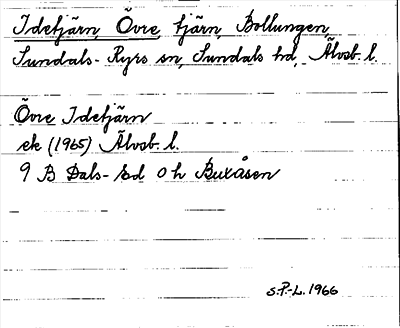 Idetjärn Övre, tjärn, Bollungen,
Sundals-Ryrs sn, Sundals hd, Älvsb. l.
Övre Idetjärn
ek (1965) Älvsb. l.
9 B Dals-Ed 0 h Buxåsen
S.P.-L. 1966